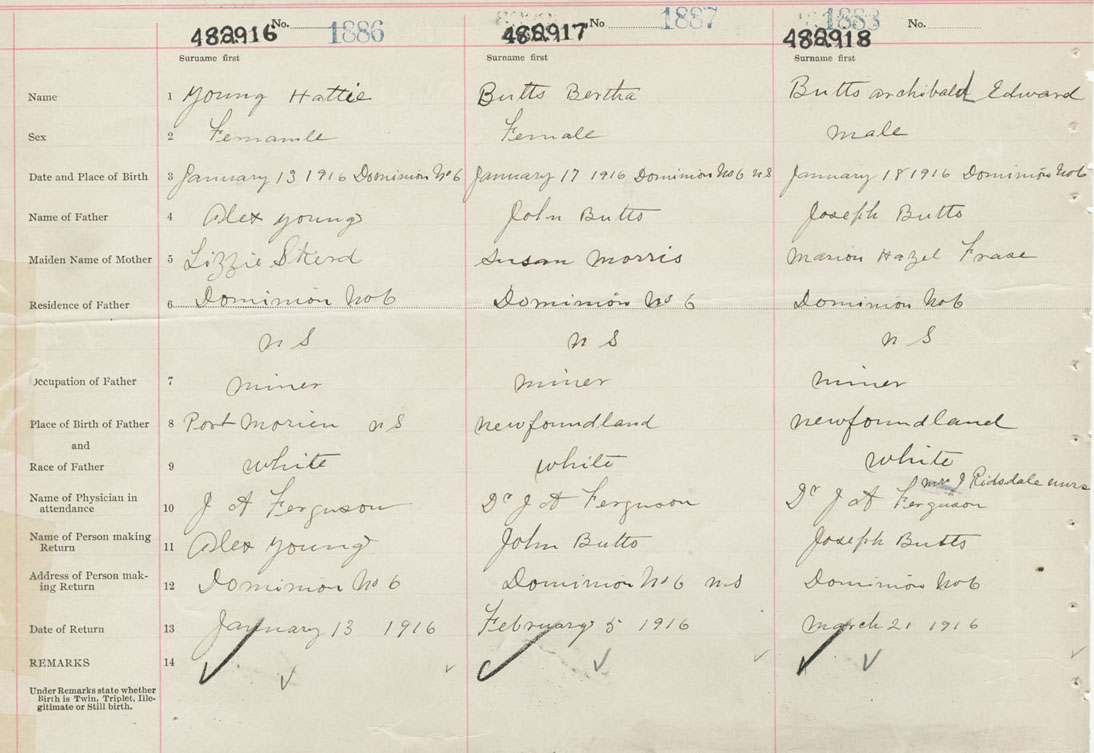 No. 1886 No 1887 1888 No.
482916 482917 482918
Surname first Surname first Surname first
Name 1 Young Hattie Butts Bertha Butts archibald Edward
Sex 2 Femamle Female male
Date and Place of Birth 3 January 13 1916 Dominion No 6 January 17 1916 Dominion No 6 n S January 18 1916 Dominion No 6
Name of Father 4 Alex young John Butts Joseph Butts
Maiden Name of Mother 5 Lizzie Susan Morris Marion Hazel Frase
Residence of Father 6 Dominion No 6 Dominion No 6 Dominion No 6
n S n S n S
Occupation of Father 7 miner miner miner
Place of Birth of Father 8 Port Morien n S newfoundland newfoundland
and
Race of Father 9 white white white
Mrs J Ridsdale nurs
Name of Physician in
attendance 10 J A Ferguson Dr J A Ferguson Dr J A Ferguson
Name of Person making
Return 11 Alex Young John Butts Joseph Butts
Address of Person mak-
ing Return 12 Dominion No 6 Dominion No 6 n S Dominion No 6
Date of Return 13 January 13 1916 February 5 1916 March 21 1916
REMARKS 14
Under Remarks state whether
Birth is Twin, Triplet, Ille-
gitimate or Still birth.